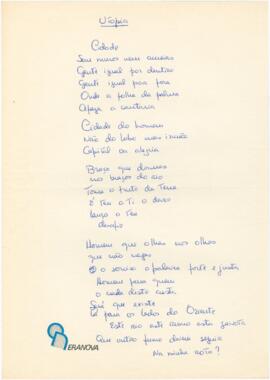 Utopia
Cidade
Sem muros nem ameias
Gente igual por dentro
Gente igual por fora
Onde a folha da palma
Afaga a cantaria
Cidade do homem
Não do lobo mas irmão
Capital da alegria
Braço que dormes
nos braços do rio
Toma o fruto da Terra
É teu a Ti o deves
lança o teu
desafio
Homem que olhas nos olhos
que não negas
o sorriso a palavra forte e justa
Homem para quem
o nada disto custa
Será que existe
lá para os lados do Oriente
Este rio este rumo esta gaivota
Que outro fumo deverei seguir
Na minha rota?
ERANOVA